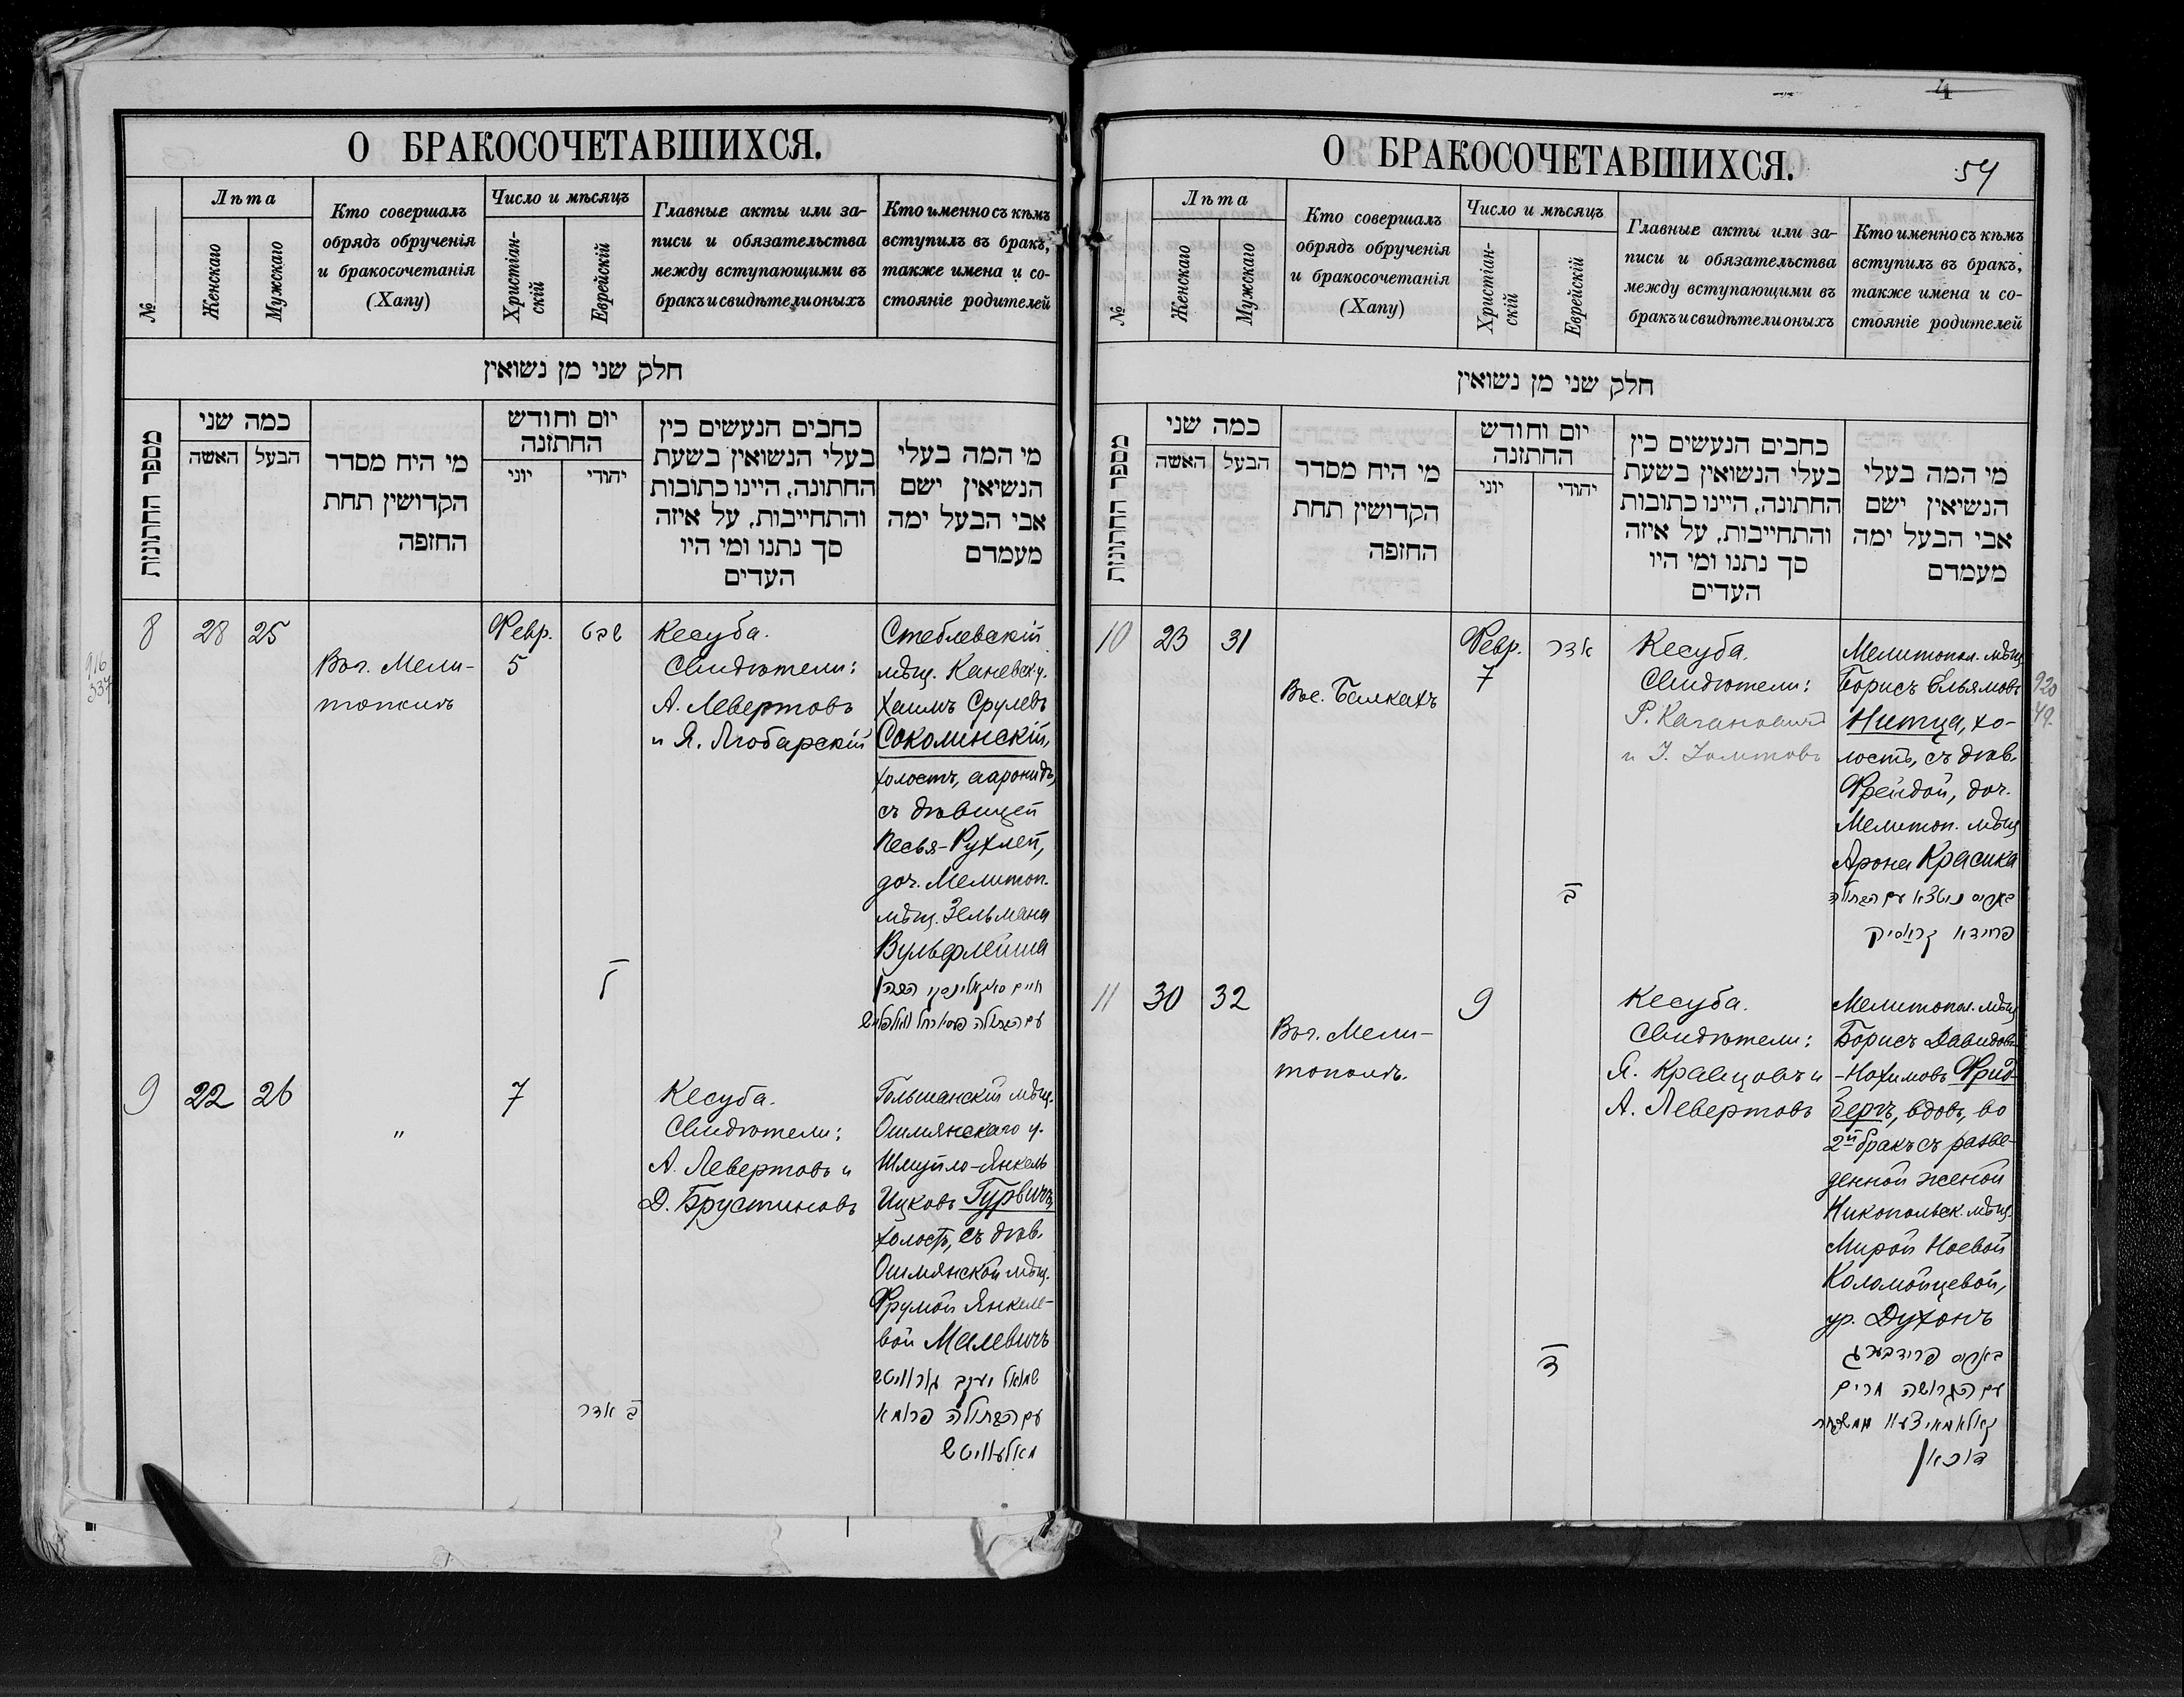 О БРАКОСОЧЕТАВШИХСЯ.
№
Лѣта
Женскаго
Мужскаго
Кто совершалъ
обрядъ обрученія
и бракосочетанія
(Хапу)
Число и мѣсяцъ
Христіан-
скій
Еврейскій
Главные акты или за-
писи и обязательства
между вступающими въ
бракъ и свидѣтели оныхъ
Кто именно съ кѣмъ
вступилъ въ бракъ,
также имена и со-
стояніе родителей
חלק שני מן נשואין
מספר החתונות
כמה שני
האשה
הבעל
מי היח מסדר
הקדושין תחת
החופה
יום וחודש
החתונה
יוני
יהודי
כחבים הנעשים כין
בעלי הנשואין בשעת
החתונה, היינו כתובות
והתחייבות, על איזה
סך נתנו ומי היו
העדים
מי המה בעלי
הנשיאין ישם
אבי הבעל ימה
מעמדם
8
28
25
Въ г. Мели-
тополѣ
Февр.
5
שבט
ל
Кесуба.
Свидѣтели:
А. Левертовъ
и Я. Любарскій
Стеблевскій
мѣщ. Каневск. у.
Хаимъ Срулевъ
Соколинскій,
холостъ, ааронидъ,
съ дѣвицей
Песья-Рухлей,
доч. Мелитоп.
мѣщ. Зельмана
Вульфлейша
חיים סאקאלינסקי הכהן
עם הבתולה פעסיא רחל וואולפלייש
9
22
26
"
7
ב אדר
Кесуба.
Свидѣтели:
А. Левертовъ и
Д. Брустиновъ
Гольшанскій мѣщ.
Ошмянскаго у.
Шмуйло-Янкель
Ицковъ Гурвичъ,
холостъ, съ дѣв.
Ошмянской мѣщ.
Фрумой Янкеле-
вой Малевичъ
שמואל יעקב גורוויטש
עם הבתולה פרומא
מאלעוויטש
4
54
О БРАКОСОЧЕТАВШИХСЯ.
№
Лѣта
Женскаго
Мужскаго
Кто совершалъ
обрядъ обрученія
и бракосочетанія
(Хапу)
Число и мѣсяцъ
Христіан-
скій
Еврейскій
Главные акты или за-
писи и обязательства
между вступающими въ
бракъ и свидѣтели оныхъ
Кто именно съ кѣмъ
вступилъ въ бракъ,
также имена и со-
стояніе родителей
חלק שני מן נשואין
מספר החתונות
כמה שני
האשה
הבעל
מי היח מסדר
הקדושין תחת
החופה
יום וחודש
החתונה
יוני
יהודי
כחבים הנעשים כין
בעלי הנשואין בשעת
החתונה, היינו כתובות
והתחייבות, על איזה
סך נתנו ומי היו
העדים
מי המה בעלי
הנשיאין ישם
אבי הבעל ימה
מעמדם
10
23
31
Въ с. Балкахъ
Февр.
7
אדר
ב
Кесуба.
Свидѣтели:
Р. Кагановичъ
и
Мелитопол. мѣщ.
Борисъ Ельямовъ
Нитца, хо-
лостъ, съ дѣв.
Фрейдой, доч.
Мелитоп. мѣщ.
Арона Красика
באריס ניטצא עם הבתולה
פריידא קראסיק
11
30
32
Въ г. Мели-
тополѣ.
9
ד
Кесуба.
Свидѣтели:
Я. Кравцовъ и
А. Левертовъ
Мелитопол. мѣщ.
Борисъ Давидовъ
-Нохимовъ Фрид-
бергъ, вдовъ, во
2й бракъ съ разве-
денной женой
Никопольск. мѣщ.
Мирой Ноевой
Коломойцевой,
ур. Духонъ
באריס פרידבערג
עם הגרושה מרים
דוכאן
920
49.
916
337